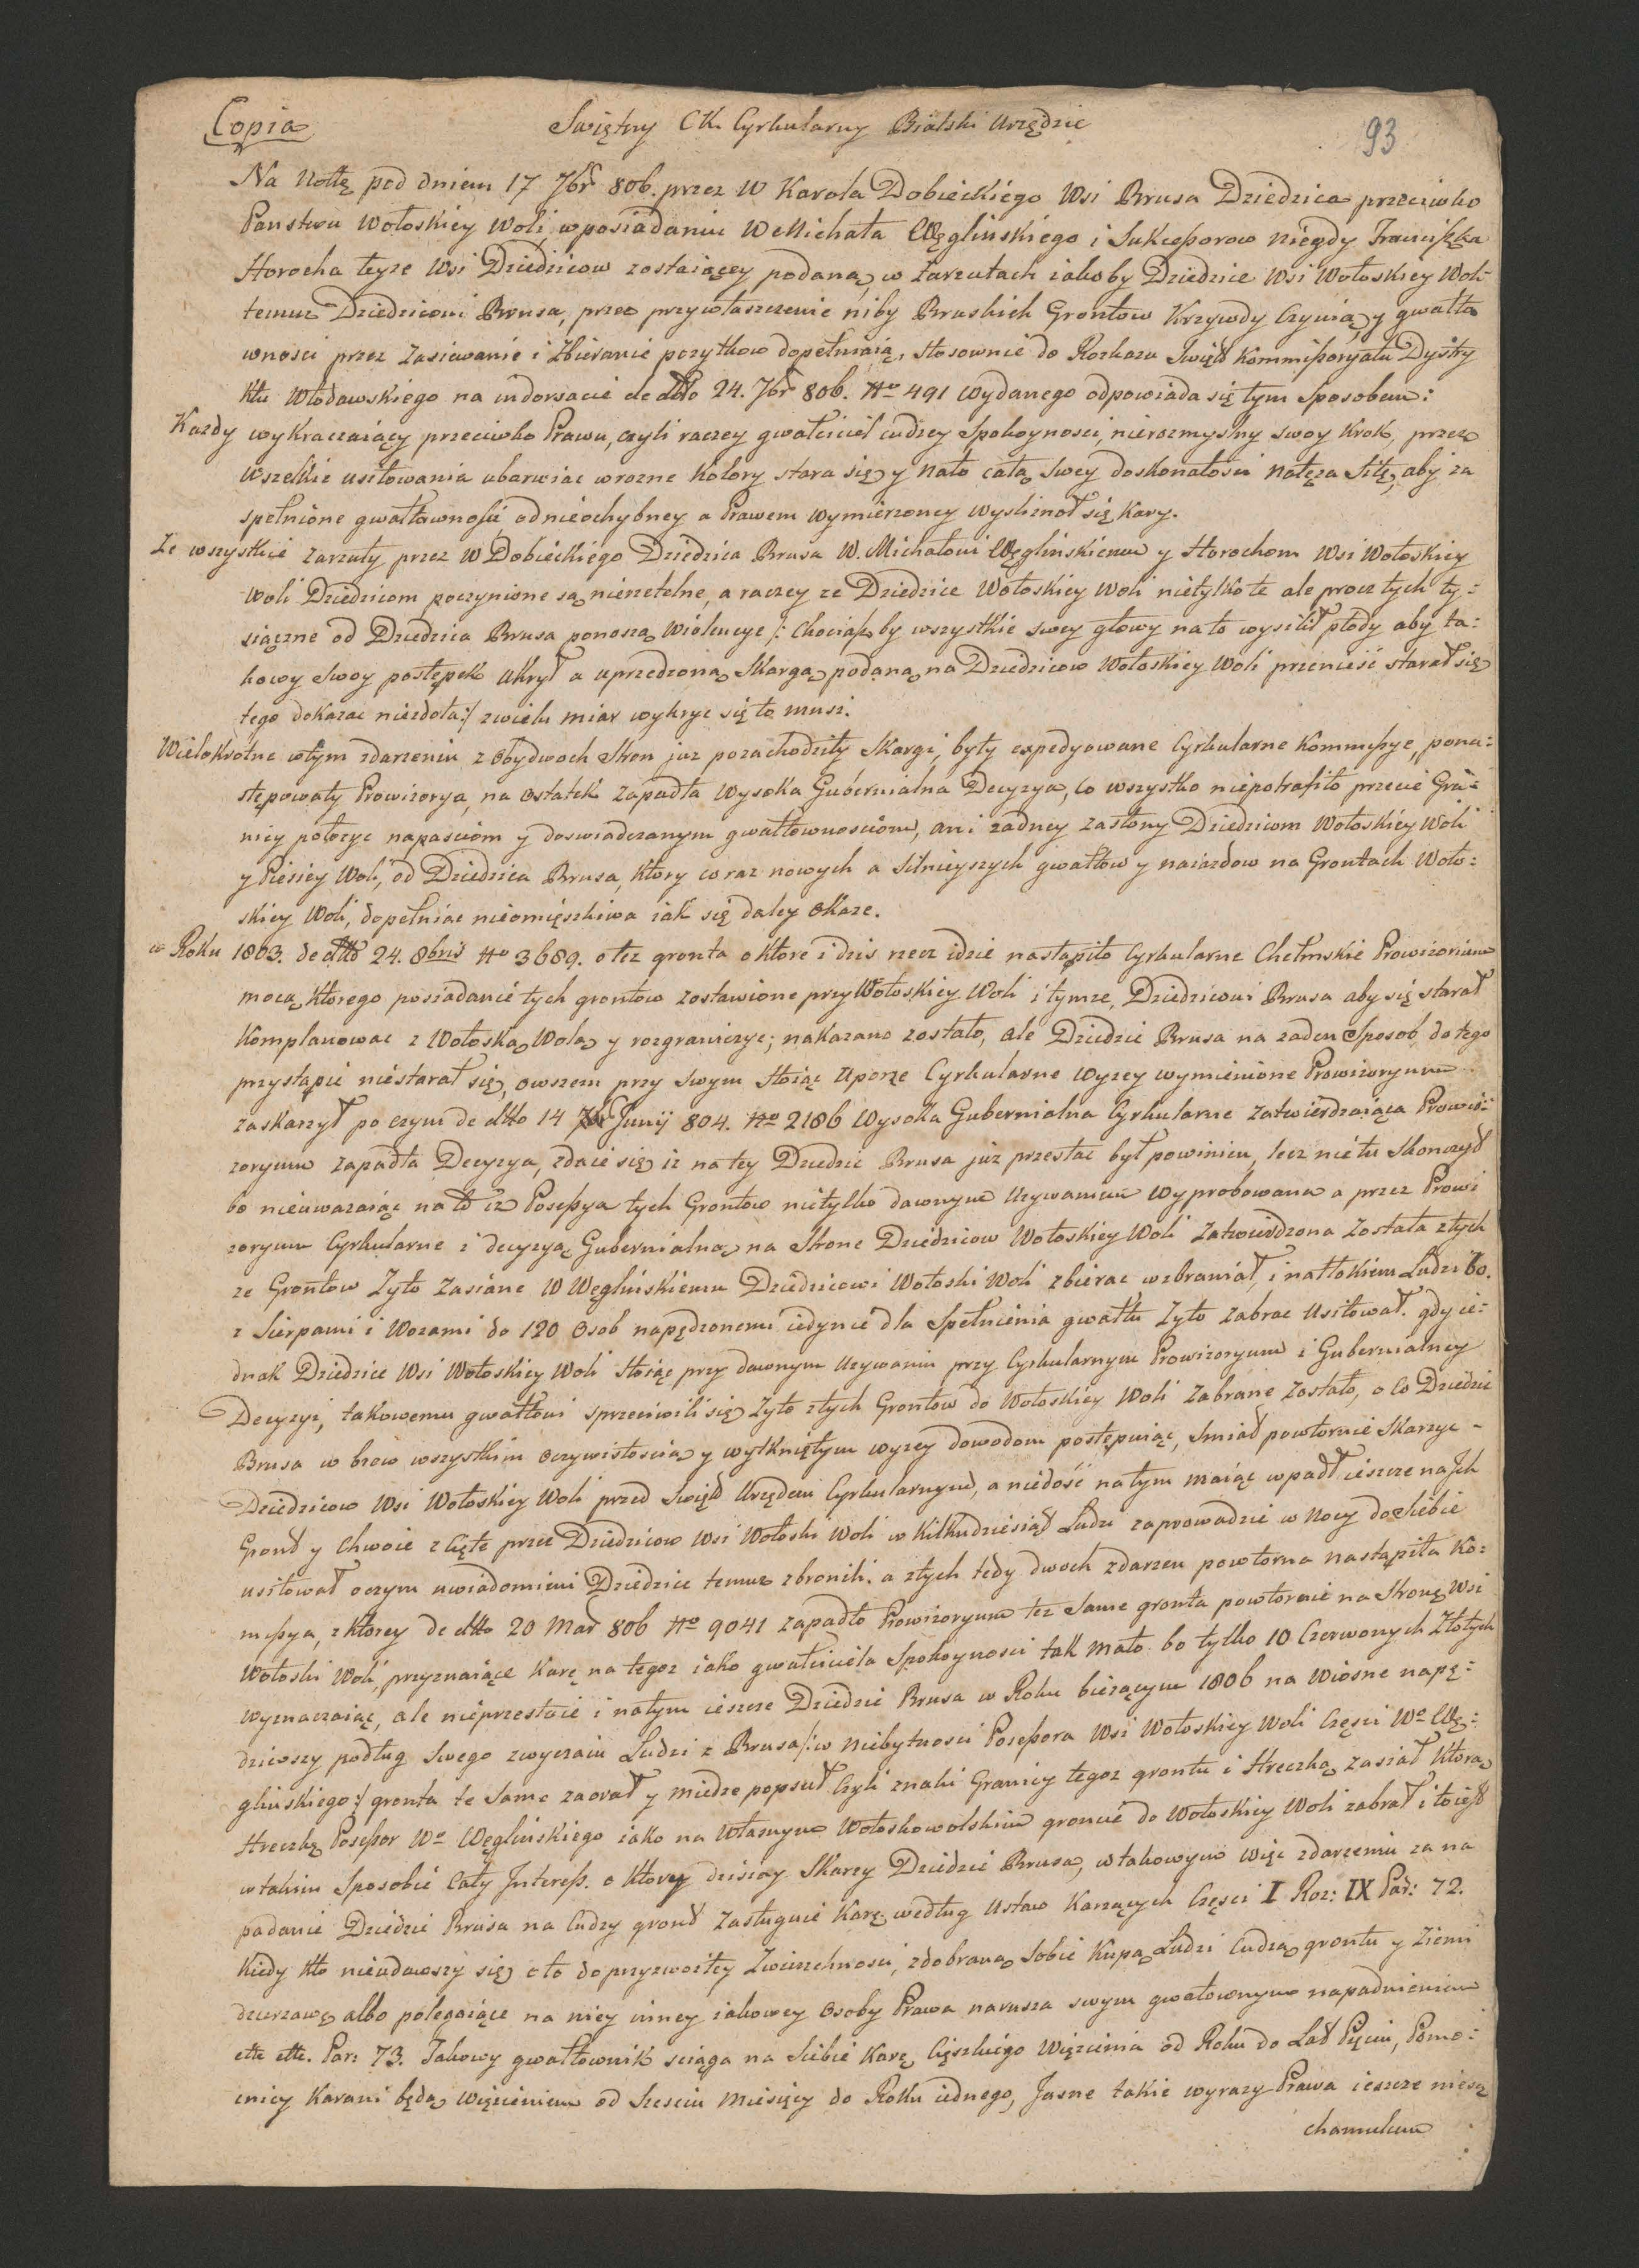 Copia
Swiętny CK. Cyrkularny Bialski Urzędzie
93
Na Nottę pod dniem 17 7br 806. przez W Karola Dobieckiego Wsi Brusa Dziedzica przeciwko
Panstwu Wołoskiey Woli w posiadaniu W Michała Węglinskiego i Sukceßorow niegdy Franciszka
Horocha teyze Wsi Dziedzicow zostaiącey podaną, w zarzutach iakoby Dziedzice Wsi Wołoskiey Woli
temuz Dziedzicowi Brusa, przez przywłaszczenie niby Bruskich Grontow Krzywdy Czynią, y gwałto
wnosci przez Zasiewanie i Zbieranie pozytkow dopełniaią, stosownie do Rozkazu Swięt Kommißoryatu Dystry
ktu Włodawskiego na indorsacie de dtto 24. 7br 806. No 491 wydanego odpowiada się tym Sposobem:
Kazdy wykraczaiący przeciwko Prawu, czyli raczey gwałciciel cudzey Spokoynosci, nierozmyslny swoy Krok, przez
wszelkie usiłowania ubarwiac w rozne Kolory stara się y na to całą swey doskonałosci natęza Siłę, aby za
spełnione gwałtownosci, od nieochybney a Prawem wymierzoney wysliznoł się Kary.
Ze wszystkie zarzuty przez W Dobieckiego Dziedzica Brusa W. Michałowi Węglinskiemu y Horochom Wsi Wołoskiey
Woli Dziedzicom poczynione są nierzetelne, a raczey ze Dziedzice Wołoskiey Woli nietylko te ale procz tych ty:
siączne od Dziedzica Brusa ponoszą Wiolencye /: chociaß by wszystkie swey głowy na to wysilił płody aby ta:
kowy swoy postępek ukrył a uprzedzoną Skargą podaną na Dziedzicow Wołoskiey Woli przenieść starał się
tego dokazac niezdoła:/ z wielu miar wykryc się to musi.
Wielokrotne w tym zdarzeniu z obydwoch Stron juz pozachodziły Skargi, były expedyowane Cyrkularne Kommißye, pona:
stępowały Prowizorya, na ostatek zapadła Wysoka Gubernialna Decyzya, co wszystko niepotrafiło przecie Gra:
nicy połozyc napasciom y doswiadczanym gwałtownosciom, ani zadney zasłony Dziedzicom Wołoskiey Woli
y Piesiey Woli, od Dziedzica Brusa, ktory coraz nowych a silnieyszych gwałtow y naiazdow na Grontach Woło:
skiey Woli, dopełniac nieomięszkiwa iak się daley okaze.
w Roku 1803. de dtto 24. 8bris No 3689. o tez gronta o ktore i dzis rzecz idzie nastąpiło Cyrkularne Chełmskie Prowizorium
mocą ktorego posiadanie tych grontow zostawione przy Wołoskiey Woli i tymze, Dziedzicowi Brusa aby się starał
Komplanowac z Wołoską Wolą y rozgraniczyc; nakazano zostało, ale Dziedzic Brusa na zaden Sposob do tego
przystąpic niestarał się, owszem przy swym stoiąc Uporze Cyrkularne wyzey wymienione Prowizoryum
zaskarzył po czym de dtto 14 Junij 804. No 2186 Wysoka Gubernialna Cyrkularne Zatwierdzaiąca Prowi:
zoryum zapadła Decyzya, zdaie się iz na tey Dziedzic Brusa juz przestac był powinien, lecz nie tu Skonczył
bo nieuwazaiąc na to iz Poseßya tych Grontow nietylko dawnym Uzywaniem wyprobowana a przez Prowi
zoryum Cyrkularne i decyzyą Gubernialną na Strone Dziedzicow Wołoskiey Woli Zatwierdzona Została z tych
ze Grontow Zyto Zasiane W Węglinskiemu Dziedzicowi Wołoski Woli zbierac wzbraniał, i natłokiem Ludzi bo.
z Sierpami i Wozami do 120 Osob napędzonemi iedynie dla Spełnienia gwałtu Zyto zabrac Usiłował. gdy ie:
dnak Dziedzice Wsi Wołoskiey Woli stoiąc przy dawnym Uzywaniu przy Cyrkularnym Prowizoryum i Gubernialney
Decyzyi, takowemu gwałtowi sprzeciwili się Zyto z tych Grontow do Wołoskiey Woli Zabrane Zostało, o co Dziedzic
Brusa w brew wszystkim oczywistoscią y wytkniętym wyzey dowodom postępuiąc, smiał powtornie Skarzyc
Dziedzicow Wsi Wołoskiey Woli przed Swięt Urzędem Cyrkularnym, a niedość na tym maiąc wpadł ieszcze na Ich
Gront y Chwoie zcięte przez Dziedzicow Wsi Wołoski Woli w Kilkudziesiąt Ludzi zaprowadzic w nocy do Siebie
usiłował o czym uwiadomieni Dziedzice temuz zbronili. a z tych tedy dwoch zdarzen powtorna nastąpiła Ko:
mißya, z ktorey de dtto 20 Mar 806 No 9041 zapadło Prowizoryum tez same gronta powtornie na Stronę Wsi
Wołoski Woli, przyznaiące Karę na tegoz iako gwałciciela Spokoynosci tak mało bo tylko 10 Czerwonych Złotych
wyznaczaiąc, ale nieprzestaie i na tym ieszcze Dziedzic Brusa w Roku biezącym 1806 na Wiosne napę:
dziwszy podług swego zwyczaiu Ludzi z Brusa /: w niebytnosci Poseßora Wsi Wołoskiey Woli Częsci Wo Wę:
glinskiego :/ gronta te same zaorał y miedze popsuł Czyli znaki Granicy tegoz grontu i Hreczką zasiał ktorą
Hreczkę Poseßor Wo Węglinskiego iako na własnym Wołoskowolskim groncie do Wołoskiey Woli zabrał i to iest
w takim Sposobie Cały Intereß. o ktory dzisiay Skarzy Dziedzic Brusa, w takowym więc zdarzeniu za na
padanie Dziedzic Brusa na Cudzy gront Zasługuie Karę według Ustaw Karzących Częsci I Roz: IX Par: 72.
Kiedy kto nieudawszy się o to do przyzwoitey Zwierzchnosci, zdobraną sobie Kupą Ludzi Cudzą grontu y Ziemi
dzierzawę albo polegaiące na niey inney iakowey Osoby Prawa narusza swym gwałtownym napadnieniem
ett ett. Par: 73. Takowy gwałtownik sciąga na Siebie Karę Cięszkiego Więzienia od Roku do Lat Pięciu, Pomo:
cnicy Karani będą Więzieniem od Szesciu Miesięcy do Roku iednego, Jasne takie wyrazy Prawa ieszcze niesą
chamulcem